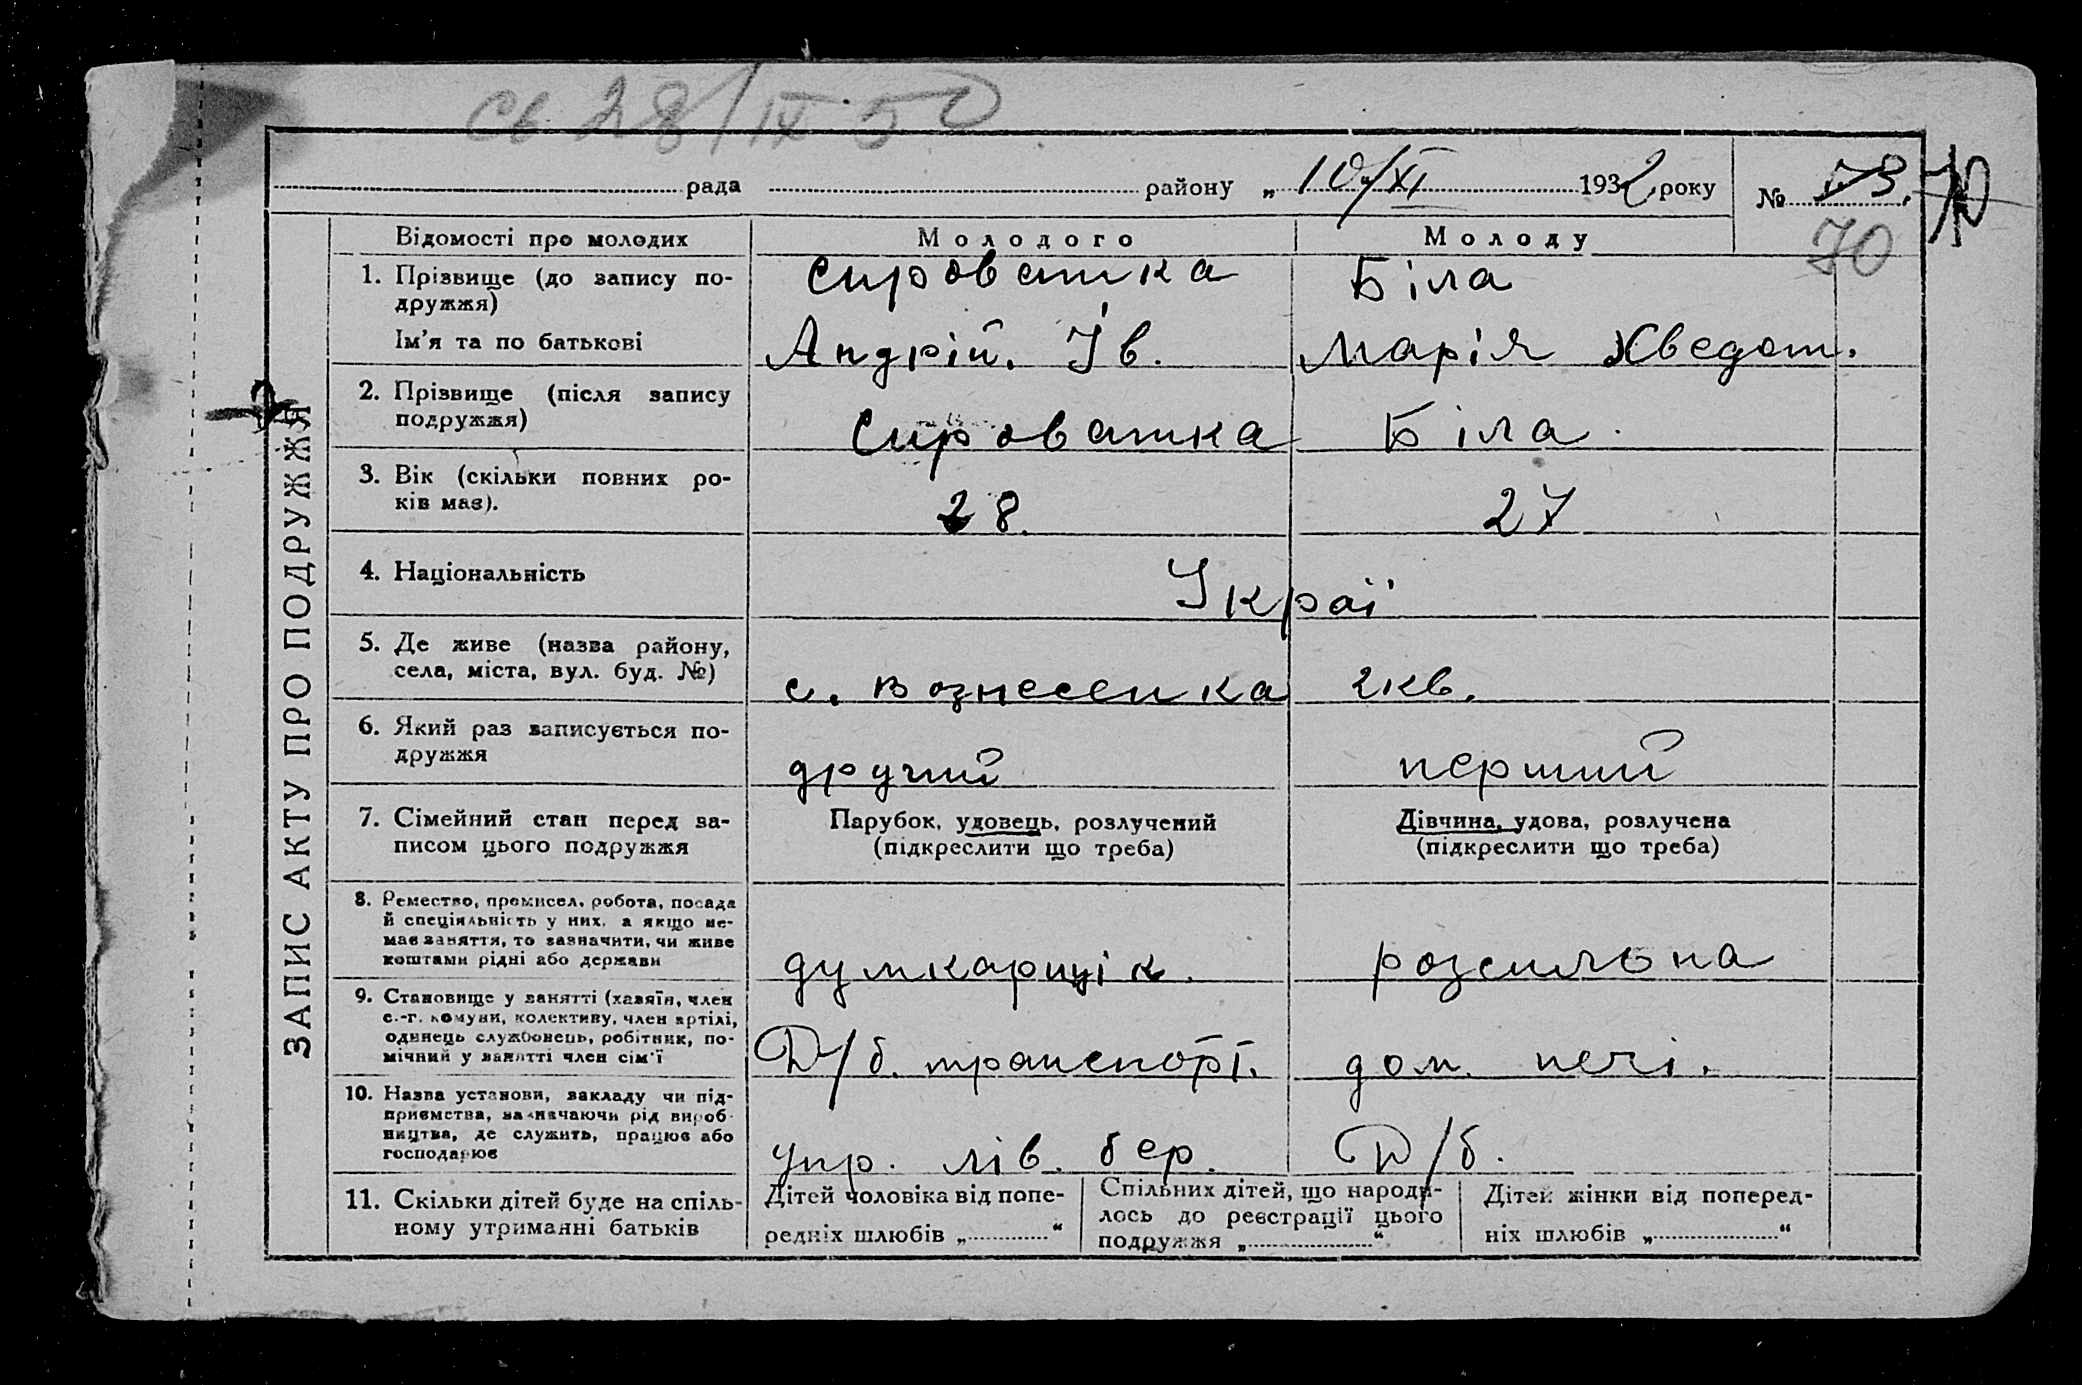 Св 28/IX 50
рада района „ 10/XI 1932 року № 73. 70
70
ЗАПИС АКТУ ПРО ПОДРУЖЖЯ
Відомості про молодих Молодого Молоду
1. Прізвище (до запису по-
дружжя)
Сироватка Біла
Ім'я та по батькові Андрій. Ів. Марія Хведот.
2. Прізвище (після запису
подружжя)
Сироватка Біла.
3. Вік (скільки повних ро-
ків має).
28. 27
4. Національність Украї
5. Де живе (назва району,
села, міста, вул. буд. №)
с. Вознесенка 2кв.
6. Який раз записується по-
дружжя
другий перший
7. Сімейний стан перед за-
писом цього подружжя
Парубок, удовець, розлучений
(підкреслити що треба)
Дівчина, удова, розлучена
(підкреслити що треба)
8. Ремество, промисел, робота, посада
й спеціяльність у них, а якщо не-
має заняття, то зазначити, чи живе
коштами рідні або держави
думкарщік. розсильна
9. Становище у занятті (хазяїн, член
с.-г. комуни, колективу, член артілі,
одинець службовець, робітник, по-
мічний у занятті член сім'ї
Д/б. транспорт. дом. печі.
10. Назва установи, закладу чи під-
приємства, зазначаючи рід вироб-
ництва, де служить, працює або
господарює
упр. лів. бер. Д/б.
11. Скільки дітей буде на спіль-
ному утриманні батьків
Дітей чоловіка від попе-
редніх шлюбів „ “
Спільних дітей, що народи-
лось до реєстрації цього
подружжя „ “
Дітей жінки від поперед-
ніх шлюбів „ “